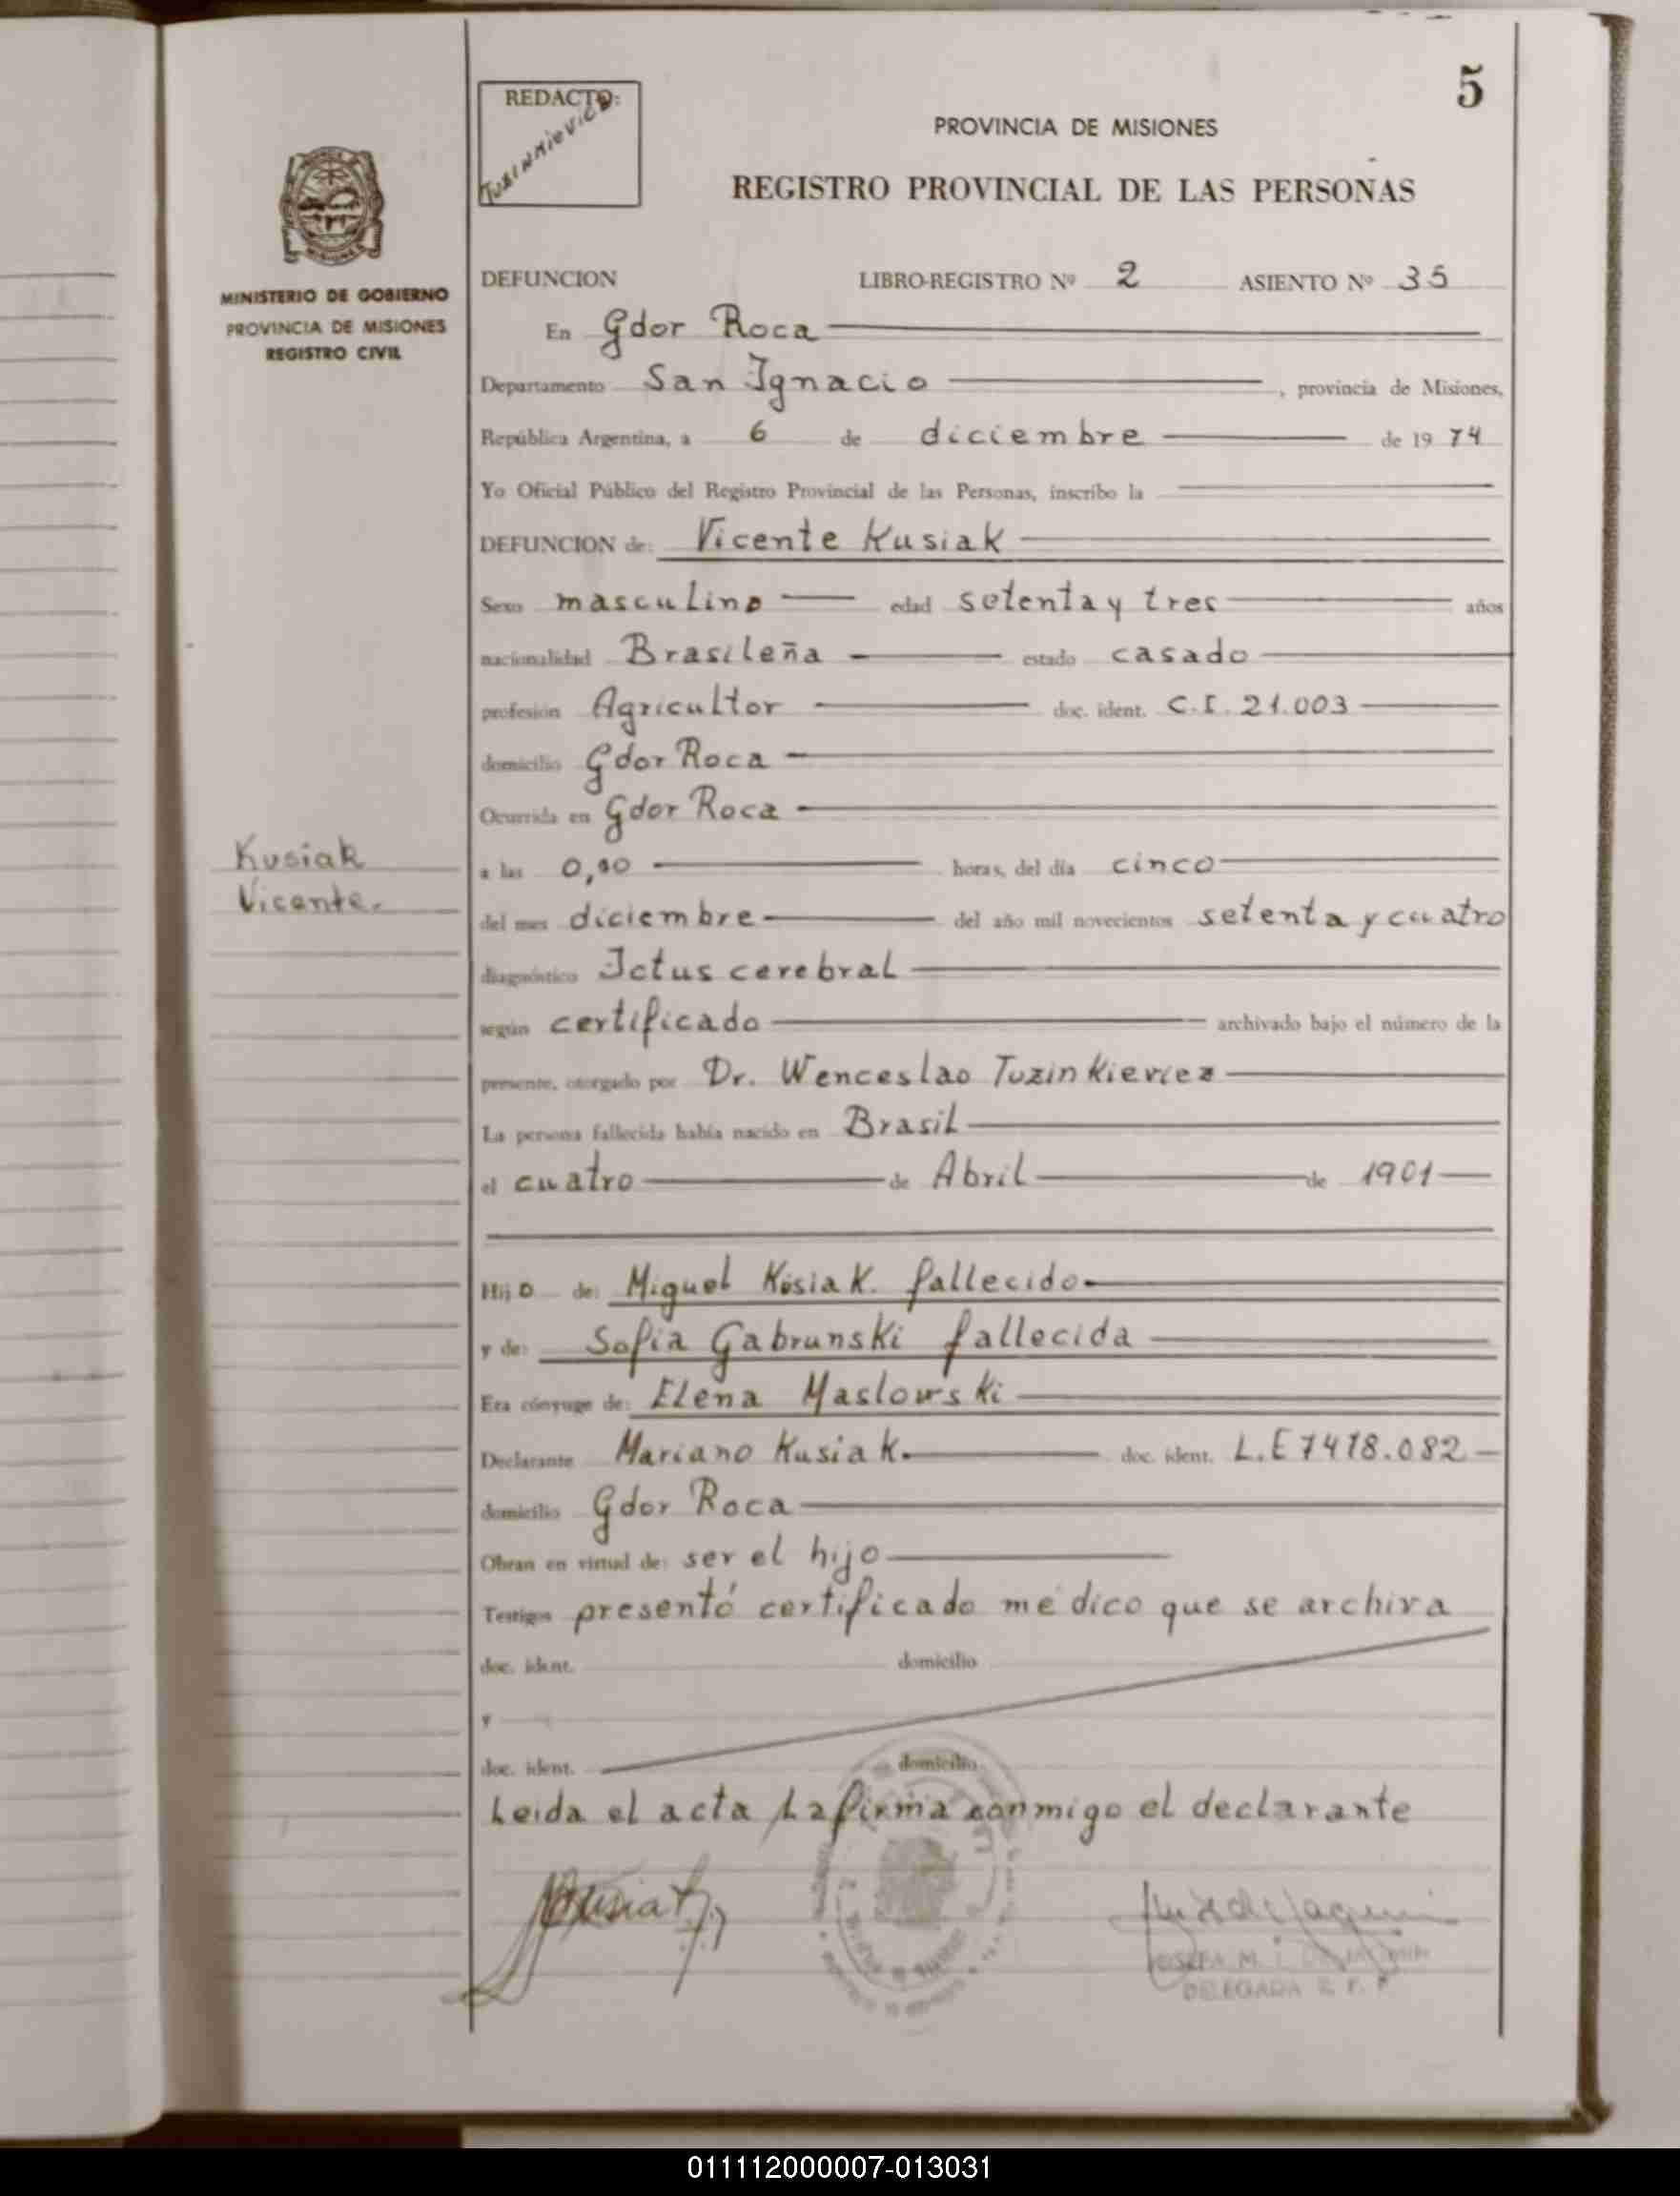 5
REDACTO:
PROVINCIA DE MISIONES
REGISTRO PROVINCIAL DE LAS PERSONAS
MINISTERIO DE GOBIERNO
PROVINCIA DE MISIONES
REGISTRO CIVIL
DEFUNCION LIBRO-REGISTRO Nº 2 ASIENTO Nº 35
En Gdor Roca
Departamento San Ignacio, provincia de Misiones,
República Argentina, a 6 de diciembre de 1974
Yo Oficial Público del Registro Provincial de las Personas, inscribo la
DEFUNCION de: Vicente Kusiak
Sexo masculino edad setenta y tres años
nacionalidad Brasileña estado casado
profesión Agricultor doc. ident. C.I. 21.003
domicilio Gdor Roca
Ocurrida en Gdor Roca
Kusiak
Vicente.
a las horas, del día cinco
del mes diciembre del año mil novecientos setenta y cuatro
diagnóstico Ictus cerebral
según certificado archivado bajo el número de la
presente, otorgado por Dr. Wenceslao Tuzinkievicz
La persona fallecida había nacido en Brasil
el cuatro de Abril de 1901
Hijo de: Miguel Kusiak. fallecido
y de: Sofia Gabrunski fallecida
Era cónyuge de: Elena Maslowski
Declarante Mariano Kusiak. doc. ident. L.E 7478.082
domicilio Gdor Roca
Obran en virtud de: ser el hijo
Testigos presentó certificado médico que se archiva
doc. ident. domicilio
y
doc. ident. domicilio
Leida el acta La firma conmigo el declarante
DELEGADA
011112000007-013031